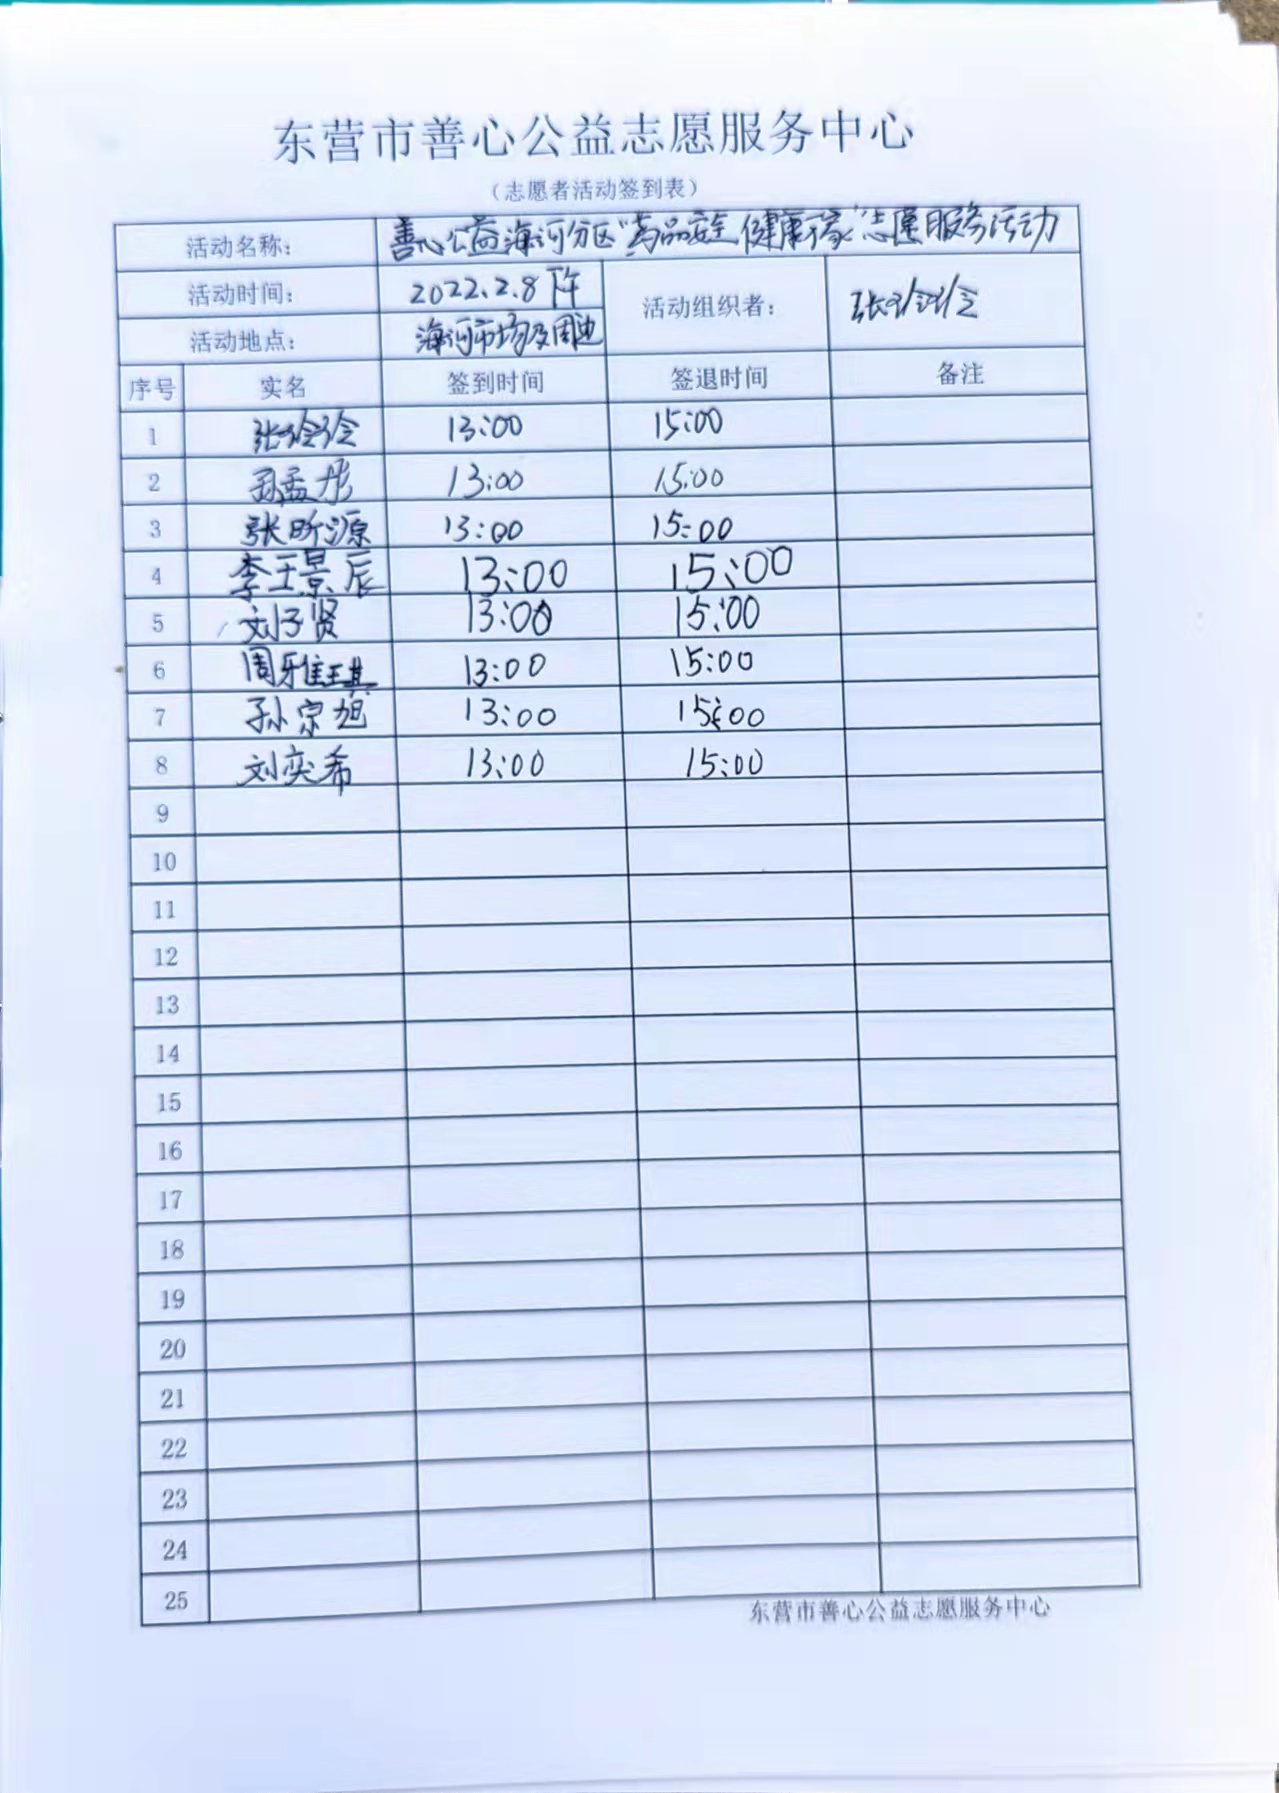 东营市善心公益志愿服务中心
（志愿者活动签到表）
活动名称： 善心公益海河分区“药品安全 健康万家”志愿服务活动
活动时间： 2022.2.8下午 活动组织者： 张玲玲
活动地点： 海河市场及周边
序号 实名 签到时间 签退时间 备注
1 张玲玲 13:00 15:00
2 孙孟彤 13:00 15:00
3 张昕源 13:00 15:00
4 李玉景辰 13:00 15:00
5 刘子贤 13:00 15:00
6 周雅琪 13:00 15:00
7 孙宗旭 13:00 15:00
8 刘奕希 13:00 15:00
9
10
11
12
13
14
15
16
17
18
19
20
21
22
23
24
25
东营市善心公益志愿服务中心